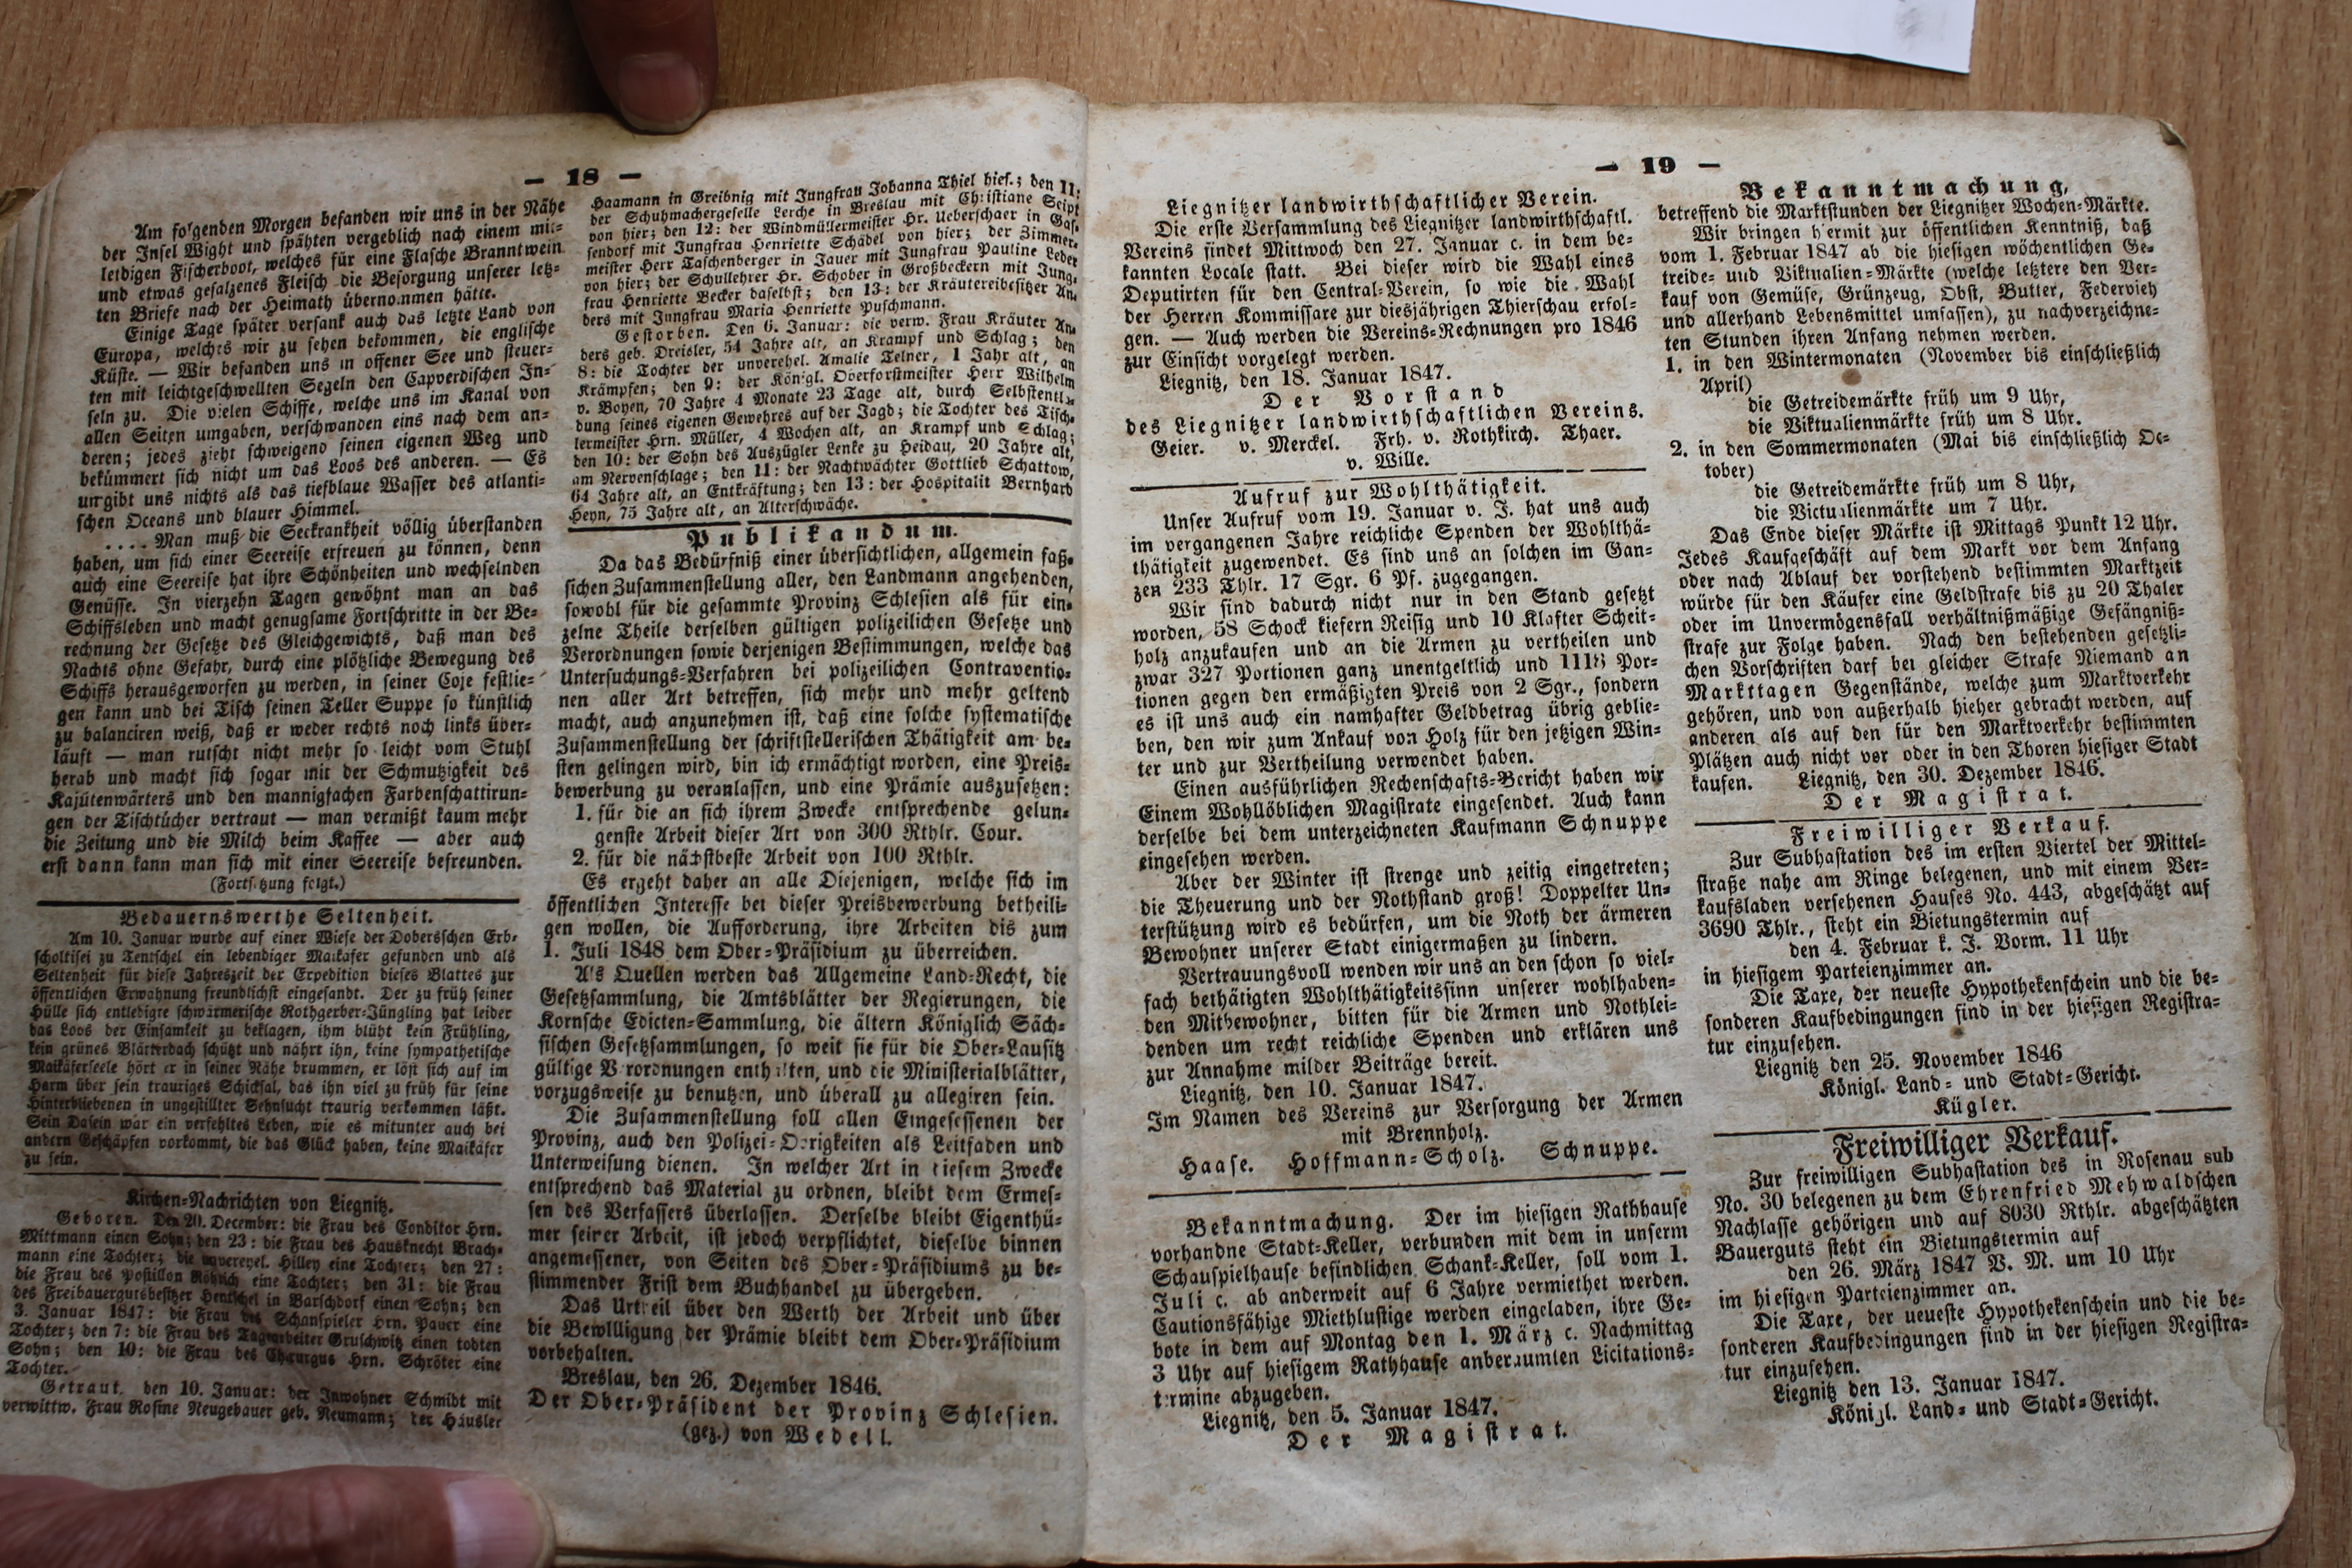 — 18 —
Am folgenden Morgen befanden wir uns in der Nähe
der Insel Wight und spähten vergeblich nach einem mit-
leidigen Fischerboot, welches für eine Flasche Branntwein
und etwas gesalzenes Fleisch die Besorgung unserer letz-
ten Briefe nach der Heimath übernommen hätte.
Einige Tage später versank auch das letzte Land von
Europa, welches wir zu sehen bekommen, die englische
Küste. — Wir befanden uns in offener See und steuer-
ten mit leichtgeschwellten Segeln den Capverdischen In-
seln zu. Die vielen Schiffe, welche uns im Kanal von
allen Seiten umgaben, verschwanden eins nach dem an-
deren; jedes zieht schweigend seinen eigenen Weg und
bekümmert sich nicht um das Loos des anderen. — Es
umgibt uns nichts als das tiefblaue Wasser des atlanti-
schen Oceans und blauer Himmel.
.... Man muß die Seekrankheit völlig überstanden
haben, um sich einer Seereise erfreuen zu können, denn
auch eine Seereise hat ihre Schönheiten und wechselnden
Genüsse. In vierzehn Tagen gewöhnt man an das
Schiffsleben und macht genugsame Fortschritte in der Be-
rechnung der Gesetze des Gleichgewichts, daß man des
Nachts ohne Gefahr, durch eine plötzliche Bewegung des
Schiffs herausgeworfen zu werden, in seiner Coje festlie-
gen kann und bei Tisch seinen Teller Suppe so künstlich
zu balanciren weiß, daß er weder rechts noch links über-
läuft — man rutscht nicht mehr so leicht vom Stuhl
herab und macht sich sogar mit der Schmutzigkeit des
Kajütenwärters und den mannigfachen Farbenschattirun-
gen der Tischtücher vertraut — man vermißt kaum mehr
die Zeitung und die Milch beim Kaffee — aber auch
erst dann kann man sich mit einer Seereise befreunden.
(Fortsetzung folgt.)
Bedauernswerthe Seltenheit.
Am 10. Januar wurde auf einer Wiese der Dobersschen Erb-
scholtisei zu Tentschel ein lebendiger Maikäfer gefunden und als
Seltenheit für diese Jahreszeit der Expedition dieses Blattes zur
öffentlichen Erwähnung freundlichst eingesandt. Der zu früh seiner
Hülle sich entledigte schwärmerische Rothgerber-Jüngling hat leider
das Loos der Einsamkeit zu beklagen, ihm blüht kein Frühling,
kein grünes Blätterdach schützt und nährt ihn, keine sympathetische
Maikäferseele hört er in seiner Nähe brummen, er löst sich auf im
Harm über sein trauriges Schicksal, das ihn viel zu früh für seine
Hinterbliebenen in ungestillter Sehnsucht traurig verkommen läßt.
Sein Dasein war ein verfehltes Leben, wie es mitunter auch bei
andern Geschöpfen vorkommt, die das Glück haben, keine Maikäfer
zu sein.
Kirchen-Nachrichten von Liegnitz.
Geboren. Den 20. December: die Frau des Conditor Hrn.
Mittmann einen Sohn; den 23: die Frau des Hausknecht Brach-
mann eine Tochter; die unverehel. Hilley eine Tochter; den 27:
die Frau des Postillon Röhrich eine Tochter; den 31: die Frau
des Freibauergutsbesitzer Hentschel in Barschdorf einen Sohn; den
3. Januar 1847: die Frau des Schauspieler Hrn. Pauer eine
Tochter; den 7: die Frau des Tagearbeiter Gruschwitz einen todten
Sohn; den 10: die Frau des Chirurgus Hrn. Schröter eine
Tochter.
Getraut. den 10. Januar: der Inwohner Schmidt mit
verwittw. Frau Rosine Neugebauer geb. Neumann; der Häusler
Haamann in Greibnig mit Jungfrau Johanna Thiel hies.; den 11:
der Schuhmachergeselle Lerche in Breslau mit Christiane Seipt
von hier; den 12: der Windmüllermeister Hr. Ueberschaer in Gas-
sendorf mit Jungfrau Henriette Schädel von hier; der Zimmer-
meister Herr Taschenberger in Jauer mit Jungfrau Pauline Leder
von hier; der Schullehrer Hr. Schober in Großbeckern mit Jung-
frau Henriette Becker daselbst; den 13: der Kräutereibesitzer An-
ders mit Jungfrau Maria Henriette Puschmann.
Gestorben. Den 6. Januar: die verw. Frau Kräuter An-
ders geb. Dreisler, 54 Jahre alt, an Krampf und Schlag; den
8: die Tochter der unverehel. Amalie Telner, 1 Jahr alt, an
Krämpfen; den 9: der Königl. Oberforstmeister Herr Wilhelm
v. Boyen, 70 Jahre 4 Monate 23 Tage alt, durch Selbstentla-
dung seines eigenen Gewehres auf der Jagd; die Tochter des Tisch-
lermeister Hrn. Müller, 4 Wochen alt, an Krampf und Schlag;
den 10: der Sohn des Auszügler Lenke zu Heidau, 20 Jahre alt,
am Nervenschlage; den 11: der Nachtwächter Gottlieb Schattow,
64 Jahre alt, an Entkräftung; den 13: der Hospitalit Bernhard
Heyn, 75 Jahre alt, an Alterschwäche.
Publikandum.
Da das Bedürfniß einer übersichtlichen, allgemein faß-
sichen Zusammenstellung aller, den Landmann angehenden,
sowohl für die gesammte Provinz Schlesien als für ein-
zelne Theile derselben gültigen polizeilichen Gesetze und
Verordnungen sowie derjenigen Bestimmungen, welche das
Untersuchungs-Verfahren bei polizeilichen Contraventio-
nen aller Art betreffen, sich mehr und mehr geltend
macht, auch anzunehmen ist, daß eine solche systematische
Zusammenstellung der schriftstellerischen Thätigkeit am be-
sten gelingen wird, bin ich ermächtigt worden, eine Preis-
bewerbung zu veranlassen, und eine Prämie auszusetzen:
1. für die an sich ihrem Zwecke entsprechende gelun-
genste Arbeit dieser Art von 300 Rthlr. Cour.
2. für die nächstbeste Arbeit von 100 Rthlr.
Es ergeht daher an alle Diejenigen, welche sich im
öffentlichen Interesse bei dieser Preisbewerbung betheili-
gen wollen, die Aufforderung, ihre Arbeiten bis zum
1. Juli 1848 dem Ober-Präsidium zu überreichen.
Als Quellen werden das Allgemeine Land-Recht, die
Gesetzsammlung, die Amtsblätter der Regierungen, die
Kornsche Edicten-Sammlung, die ältern Königlich Säch-
sischen Gesetzsammlungen, so weit sie für die Ober-Lausitz
gültige Verordnungen enthalten, und die Ministerialblätter,
vorzugsweise zu benutzen, und überall zu allegiren sein.
Die Zusammenstellung soll allen Eingesessenen der
Provinz, auch den Polizei-Obrigkeiten als Leitfaden und
Unterweisung dienen. In welcher Art in diesem Zwecke
entsprechend das Material zu ordnen, bleibt dem Ermes-
sen des Verfassers überlassen. Derselbe bleibt Eigenthü-
mer seiner Arbeit, ist jedoch verpflichtet, dieselbe binnen
angemessener, von Seiten des Ober-Präsidiums zu be-
stimmender Frist dem Buchhandel zu übergeben.
Das Urtheil über den Werth der Arbeit und über
die Bewilligung der Prämie bleibt dem Ober-Präsidium
vorbehalten.
Breslau, den 26. Dezember 1846.
Der Ober-Präsident der Provinz Schlesien.
(gez.) von Wedell.
— 19 —
Liegnitzer landwirthschaftlicher Verein.
Die erste Versammlung des Liegnitzer landwirthschaftl.
Vereins findet Mittwoch den 27. Januar c. in dem be-
kannten Locale statt. Bei dieser wird die Wahl eines
Deputirten für den Central-Verein, so wie die Wahl
der Herren Kommissare zur diesjährigen Thierschau erfol-
gen. — Auch werden die Vereins-Rechnungen pro 1846
zur Einsicht vorgelegt werden.
Liegnitz, den 18. Januar 1847.
Der Vorstand
des Liegnitzer landwirthschaftlichen Vereins.
Geier. v. Merckel. Frh. v. Rothkirch. Thaer.
v. Wille.
Aufruf zur Wohlthätigkeit.
Unser Aufruf vom 19. Januar v. J. hat uns auch
im vergangenen Jahre reichliche Spenden der Wohlthä-
thätigkeit zugewendet. Es sind uns an solchen im Gan-
zen 233 Thlr. 17 Sgr. 6 Pf. zugegangen.
Wir sind dadurch nicht nur in den Stand gesetzt
worden, 58 Schock kiefern Reisig und 10 Klafter Scheit-
holz anzukaufen und an die Armen zu vertheilen und
zwar 327 Portionen ganz unentgeltlich und 1118 Por-
tionen gegen den ermäßigten Preis von 2 Sgr., sondern
es ist uns auch ein namhafter Geldbetrag übrig geblie-
ben, den wir zum Ankauf von Holz für den jetzigen Win-
ter und zur Vertheilung verwendet haben.
Einen ausführlichen Rechenschafts-Bericht haben wir
Einem Wohllöblichen Magistrate eingesendet. Auch kann
derselbe bei dem unterzeichneten Kaufmann Schnuppe
eingesehen werden.
Aber der Winter ist strenge und zeitig eingetreten;
die Theuerung und der Nothstand groß! Doppelter Un-
terstützung wird es bedürfen, um die Noth der ärmeren
Bewohner unserer Stadt einigermaßen zu lindern.
Vertrauungsvoll wenden wir uns an den schon so viel-
fach bethätigten Wohlthätigkeitssinn unserer wohlhaben-
den Mitbewohner, bitten für die Armen und Nothlei-
denden um recht reichliche Spenden und erklären uns
zur Annahme milder Beiträge bereit.
Liegnitz, den 10. Januar 1847.
Im Namen des Vereins zur Versorgung der Armen
mit Brennholz.
Haase. Hoffmann-Scholz. Schnuppe.
Bekanntmachung. Der im hiesigen Rathhause
vorhandne Stadt-Keller, verbunden mit dem in unserm
Schauspielhause befindlichen Schank-Keller, soll vom 1.
Juli c. ab anderweit auf 6 Jahre vermiethet werden.
Cautionsfähige Miethlustige werden eingeladen, ihre Ge-
bote in dem auf Montag den 1. März c. Nachmittag
3 Uhr auf hiesigem Rathhause anberaumten Licitations-
termine abzugeben.
Liegnitz, den 5. Januar 1847.
Der Magistrat.
Bekanntmachung,
betreffend die Marktstunden der Liegnitzer Wochen-Märkte.
Wir bringen hiermit zur öffentlichen Kenntniß, daß
vom 1. Februar 1847 ab die hiesigen wöchentlichen Ge-
treide- und Viktualien-Märkte (welche letztere den Ver-
kauf von Gemüse, Grünzeug, Obst, Butter, Federvieh
und allerhand Lebensmittel umfassen), zu nachverzeichne-
ten Stunden ihren Anfang nehmen werden.
1. in den Wintermonaten (November bis einschließlich
April)
die Getreidemärkte früh um 9 Uhr,
die Viktualienmärkte früh um 8 Uhr.
2. in den Sommermonaten (Mai bis einschließlich Oc-
tober)
die Getreidemärkte früh um 8 Uhr,
die Victualienmärkte um 7 Uhr.
Das Ende dieser Märkte ist Mittags Punkt 12 Uhr.
Jedes Kaufgeschäft auf dem Markt vor dem Anfang
oder nach Ablauf der vorstehend bestimmten Marktzeit
würde für den Käufer eine Geldstrafe bis zu 20 Thaler
oder im Unvermögensfall verhältnißmäßige Gefängniß-
strafe zur Folge haben. Nach den bestehenden gesetzli-
chen Vorschriften darf bei gleicher Strafe Niemand an
Markttagen Gegenstände, welche zum Marktverkehr
gehören, und von außerhalb hieher gebracht werden, auf
anderen als auf den für den Marktverkehr bestimmten
Plätzen auch nicht vor oder in den Thoren hiesiger Stadt
kaufen. Liegnitz, den 30. Dezember 1846.
Der Magistrat.
Freiwilliger Verkauf.
Zur Subhastation des im ersten Viertel der Mittel-
straße nahe am Ringe belegenen, und mit einem Ver-
kaufsladen versehenen Hauses No. 443, abgeschätzt auf
3690 Thlr., steht ein Bietungstermin auf
den 4. Februar k. J. Vorm. 11 Uhr
in hiesigem Parteienzimmer an.
Die Taxe, der neueste Hypothekenschein und die be-
sonderen Kaufbedingungen sind in der hiesigen Registra-
tur einzusehen.
Liegnitz den 25. November 1846
Königl. Land- und Stadt-Gericht.
Kügler.
Freiwilliger Verkauf.
Zur freiwilligen Subhastation des in Rosenau sub
No. 30 belegenen zu dem Ehrenfried Mehwaldschen
Nachlasse gehörigen und auf 8030 Rthlr. abgeschätzten
Bauerguts steht ein Bietungstermin auf
den 26. März 1847 V. M. um 10 Uhr
im hiesigen Parteienzimmer an.
Die Taxe, der neueste Hypothekenschein und die be-
sonderen Kaufbedingungen sind in der hiesigen Registra-
tur einzusehen.
Liegnitz den 13. Januar 1847.
Königl. Land- und Stadt-Gericht.